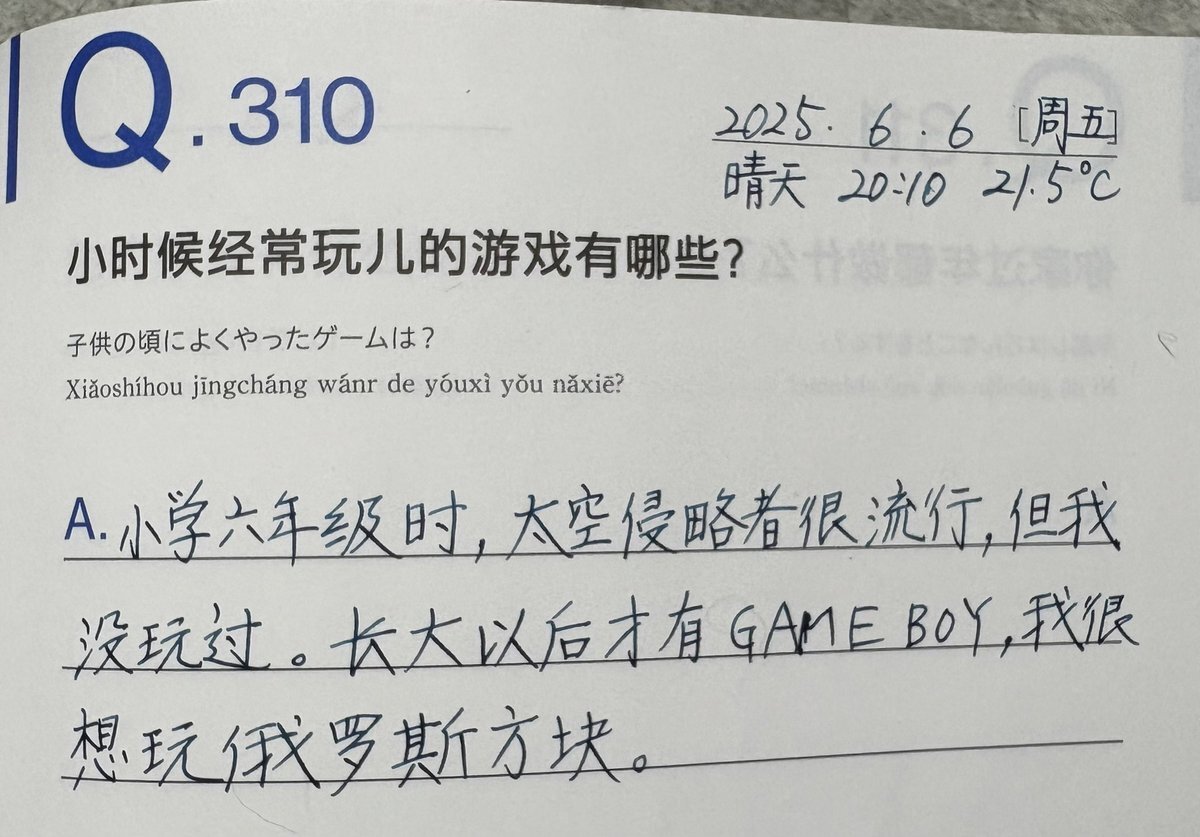 Q.310
2025. 6. 6 [周五]
晴天 20:10 21.5°C
小时候经常玩儿的游戏有哪些?
子供の頃によくやったゲームは？
Xiǎoshíhou jīngcháng wánr de yóuxì yǒu nǎxiē?
A. 小学六年级时,太空侵略者很流行,但我
没玩过。长大以后才有GAME BOY,我很
想玩俄罗斯方块。